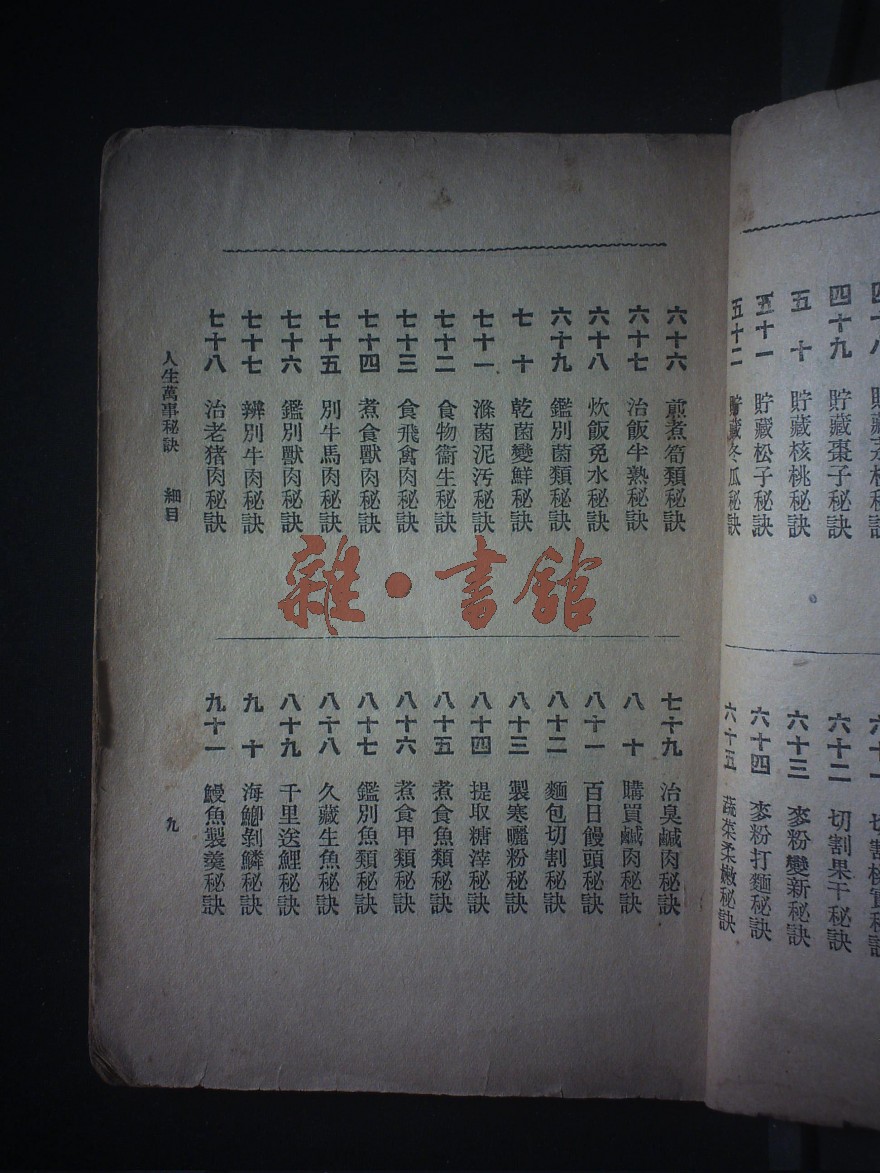 四十九 貯藏棗子秘訣
五十 貯藏核桃秘訣
五十一 貯藏松子秘訣
五十二 貯藏冬瓜秘訣
六十二 切割果干秘訣
六十三 麥粉變新秘訣
六十四 麥粉打麵秘訣
六十五 蔬菜柔嫩秘訣
六十六 煎煮筍類秘訣
六十七 治飯半熟秘訣
六十八 炊飯免水秘訣
六十九 鑑別菌類秘訣
七十 乾菌變鮮秘訣
七十一 滌菌泥汚秘訣
七十二 食物衞生秘訣
七十三 食飛禽肉秘訣
七十四 煮食獸肉秘訣
七十五 別牛馬肉秘訣
七十六 鑑別獸肉秘訣
七十七 辨別牛肉秘訣
七十八 治老猪肉秘訣
七十九 治臭鹹肉秘訣
八十 購買鹹肉秘訣
八十一 百日饅頭秘訣
八十二 麵包切割秘訣
八十三 製寒曬粉秘訣
八十四 提取糖滓秘訣
八十五 煮食魚類秘訣
八十六 煮食甲類秘訣
八十七 鑑別魚類秘訣
八十八 久藏生魚秘訣
八十九 千里送鯉秘訣
九十 海鯽剝鱗秘訣
九十一 鰻魚製羹秘訣
人生萬事秘訣 細目
九
雜·書館